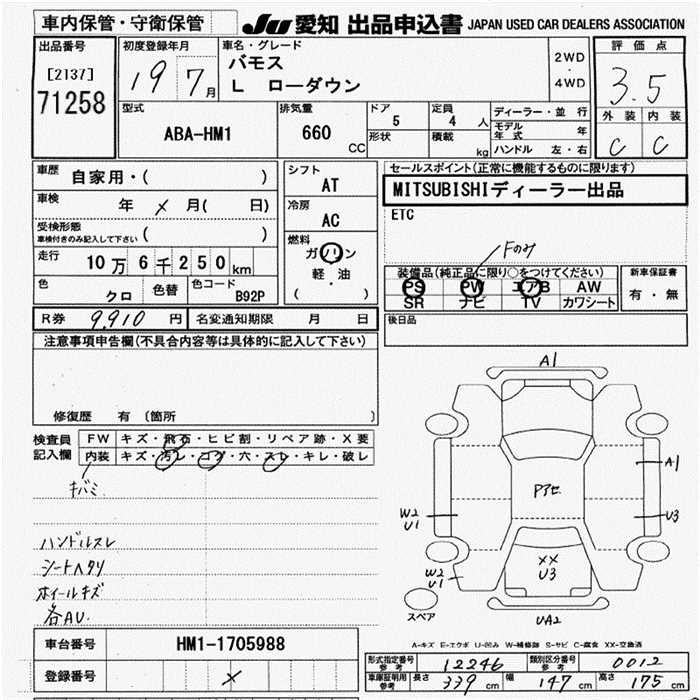 車内保管・守衛保管
JU 愛知 出品申込書 JAPAN USED CAR DEALERS ASSOCIATION
出品番号
[2137]
71258
初度登録年月
19 7月
車名・グレード
バモス
L ローダウン
2WD
・
4WD
評価点
3.5
外装 内装
C C
型式
ABA-HM1
排気量
660 CC
ドア
5
形状
定員
4 人
積載 kg
ディーラー・並行
モデル年式 年
ハンドル 左・右
車歴 自家用・( )
車検 年 メ 月( 日)
受検形態
車検付きのみ記入して下さい ( )
走行 10万6千250km
色 クロ 色替 色コード B92P
シフト
AT
冷房
AC
燃料
ガソリン
軽・油
( )
セールスポイント(正常に機能するものに限ります)
MITSUBISHIディーラー出品
ETC
Fのみ
装備品(純正品に限り○をつけてください)
PS PW エアB AW
SR ナビ TV カワシート
新車保証書
有・無
R券 9,910 円 名変通知期限 月 日
後日品
注意事項申告欄(不具合内容等は具体的に記入して下さい)
修復歴 有 〔箇所 〕
検査員記入欄
FW キズ・飛石・ヒビ割・リペア跡・X要
内装 キズ・汚レ・コゲ・穴・スレ・キレ・破レ
キバミ
ハンドルスレ
シートヘタリ
ホイールキズ
各AU.
A1
A1
Pアセ
W2
U1
U3
W2
U1
XX
U3
スペア
UA2
A-キズ E-エクボ U-凹み W-補修跡 S-サビ C-腐食 XX-交換済
車台番号 HM1-1705988
登録番号 メ
形式指定番号 参考 12246 類別区分番号 参考 0012
車庫証明用参考 長さ 339 cm 幅 147 cm 高さ 175 cm